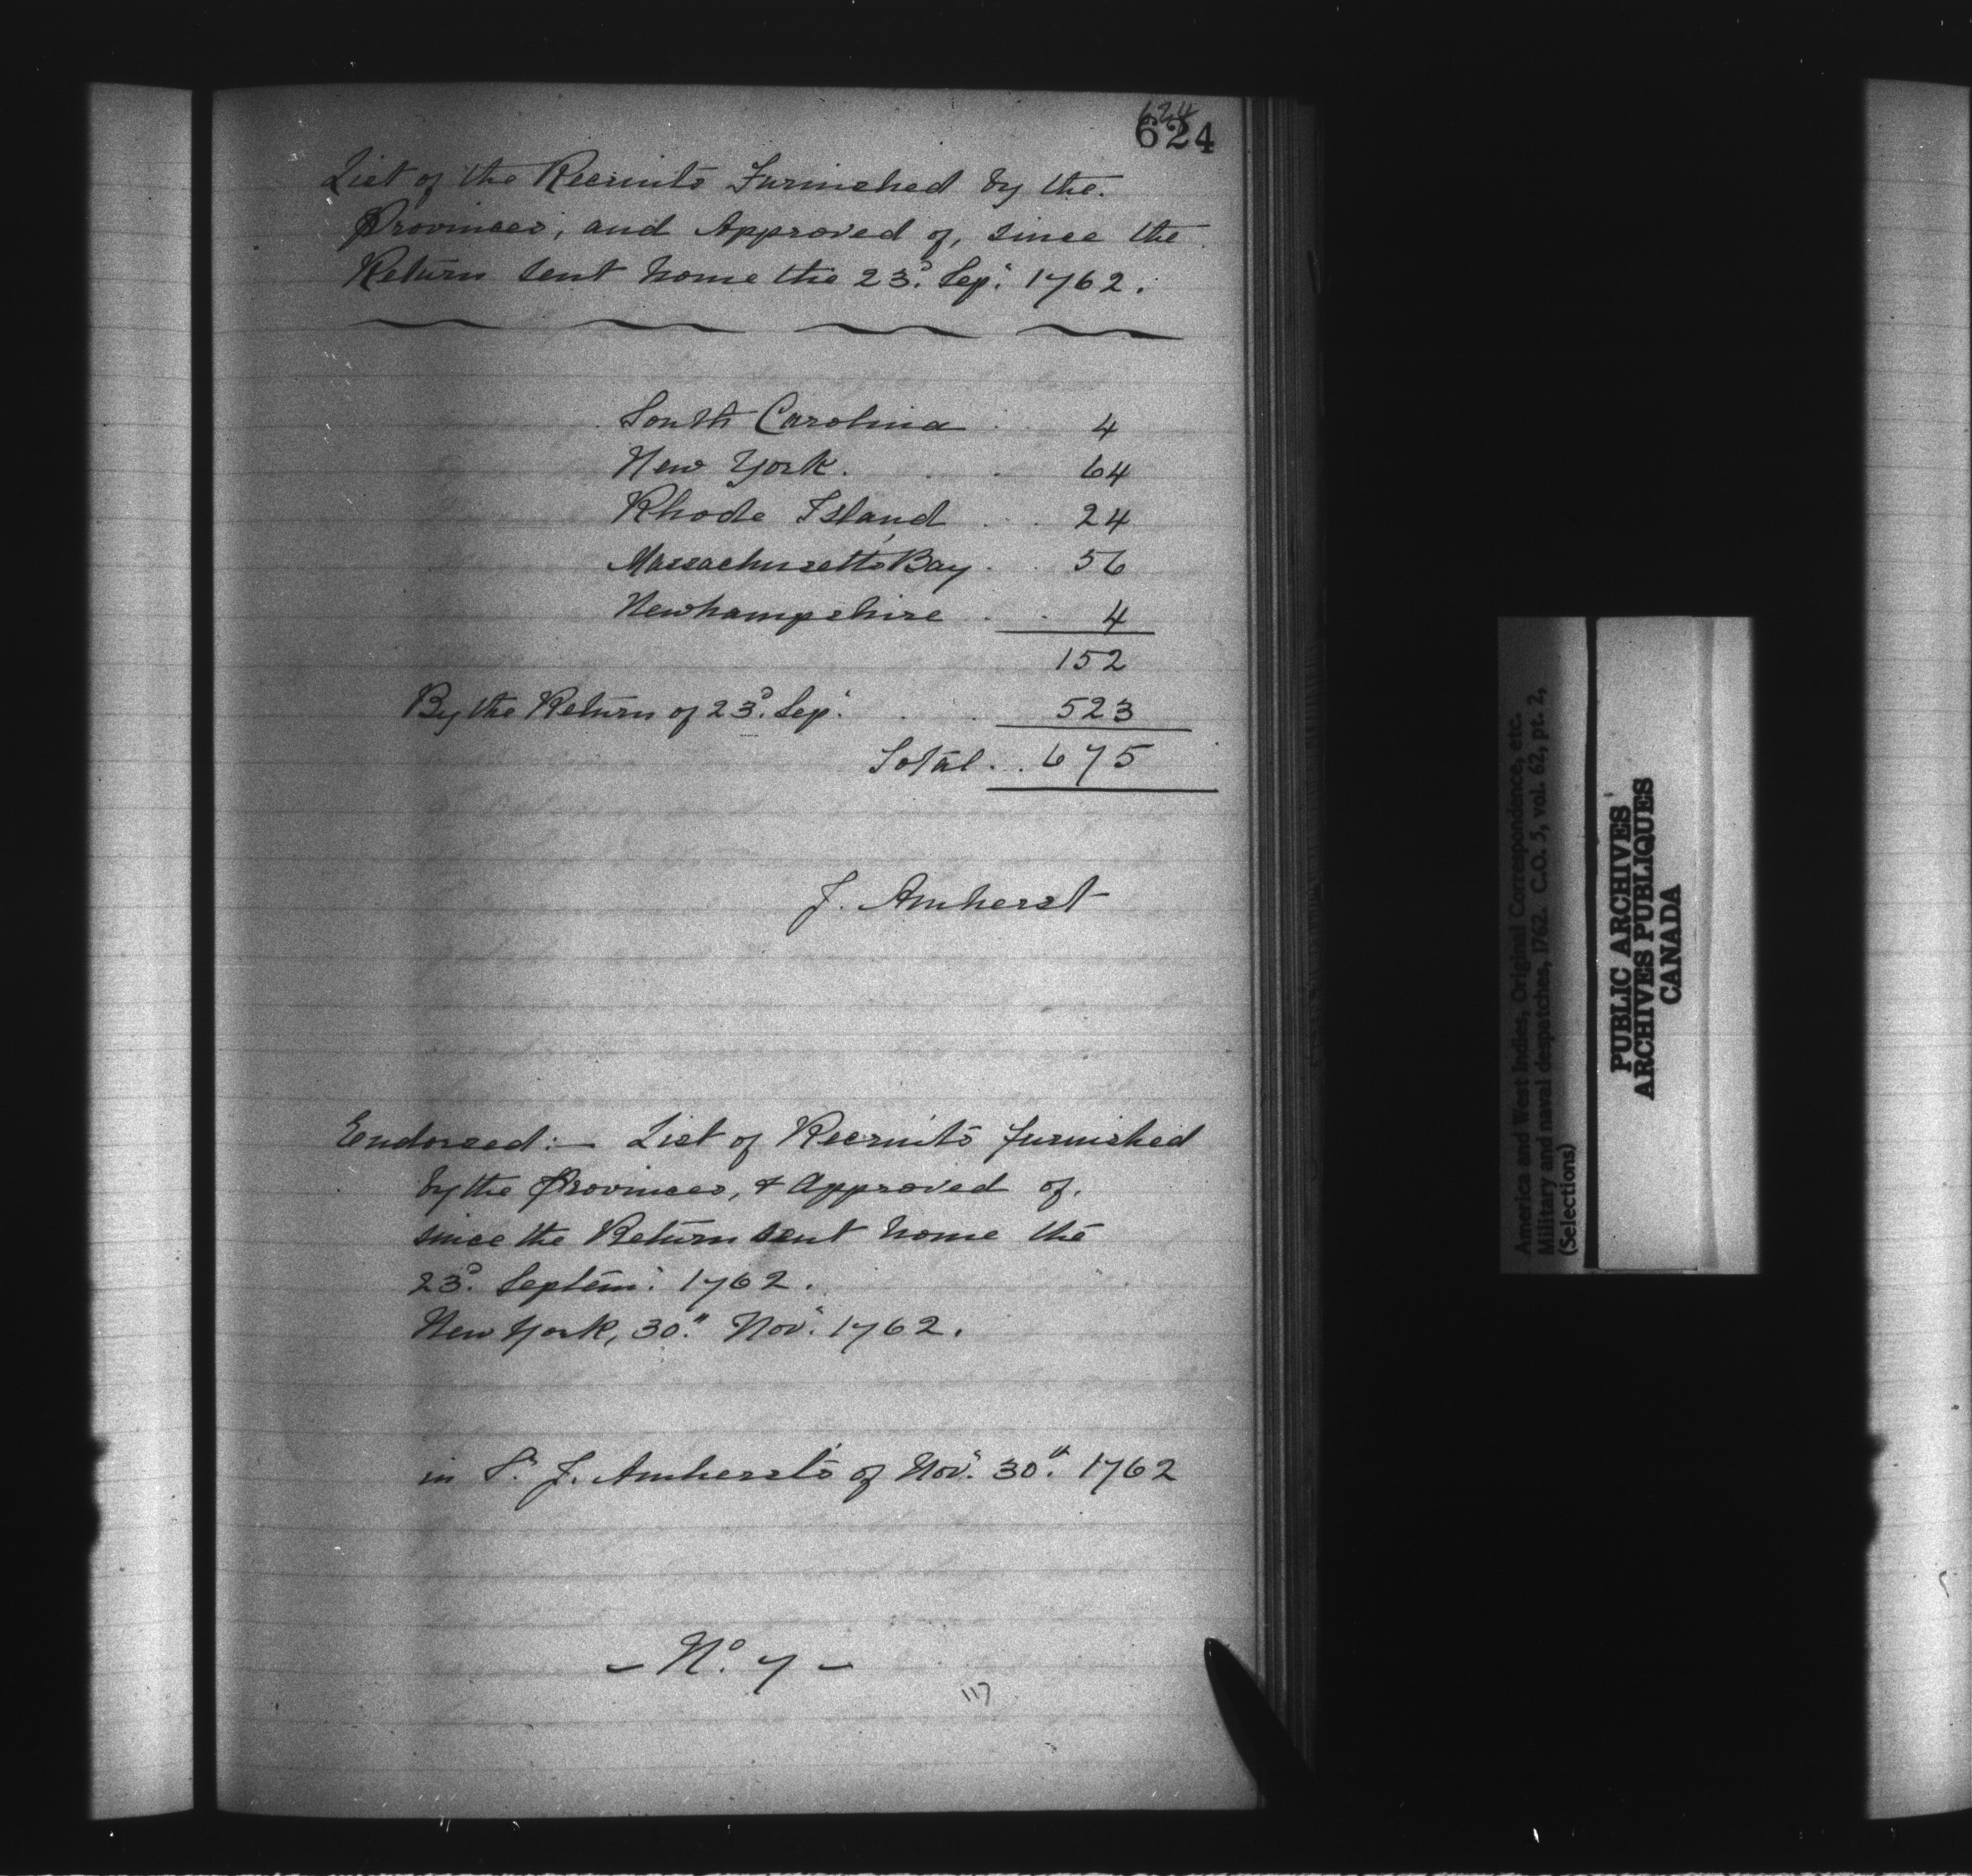 624
624
List of the Recruits Furnished by the
Provinces, and Approved of, since the
Return sent home the 23.ᵈ Sep.ʳ 1762.
South Carolina . . 4
New York . . . 64
Rhode Island . . 24
Massachusetts Bay . . 56
Newhampshire . . 4
152
By the Return of 23.ᵈ Sep.ʳ . . 523
Total . . 675
J. Amherst
Endorsed:— List of Recruits furnished
by the Provinces, & Approved of,
since the Return sent home the
23.ᵈ Septem.ʳ 1762.
New York, 30.ᵗʰ Nov.ʳ 1762.
in S.ʳ J. Amherst's of Nov.ʳ 30.ᵗʰ 1762
— N.º 7 —
117
America and West Indies, Original Correspondence, etc.
Military and naval despatches, 1762. C.O. 5, vol. 62, pt. 2,
(Selections)
PUBLIC ARCHIVES
ARCHIVES PUBLIQUES
CANADA